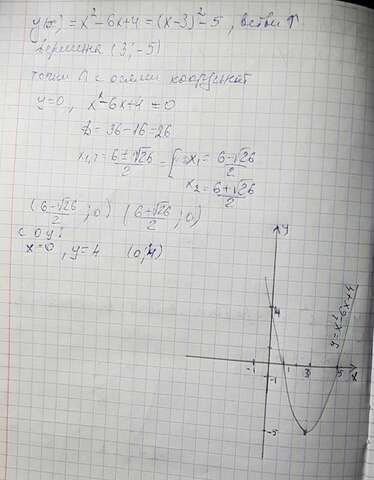 y(x) = x² - 6x + 4 = (x - 3)² - 5, ветви ↑
Вершина (3; -5)
точки ∩ с осями координат
y = 0, x² - 6x + 4 = 0
D = 36 - 16 = 26
x₁,₂ = (6 ± √26)/2 = [ x₁ = (6 - √26)/2
x₂ = (6 + √26)/2
((6 - √26)/2; 0) ((6 + √26)/2; 0)
с OY:
x = 0, y = 4 (0; 4)
y
4
y = x² - 6x + 4
-1 1 3 5 x
-1
-5